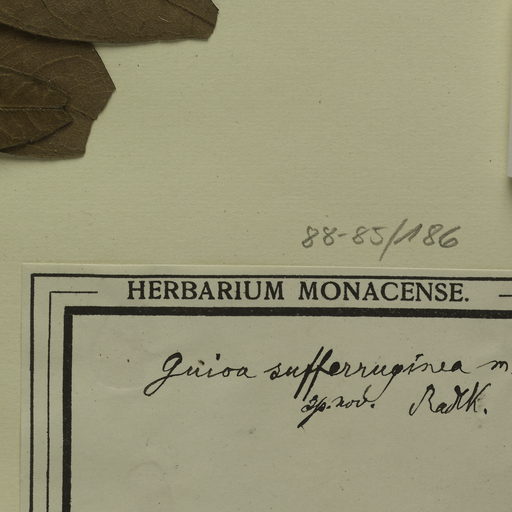 88-85/186
HERBARIUM MONACENSE.
Guioa sufferruginea m.
sp. nov. Radlk.